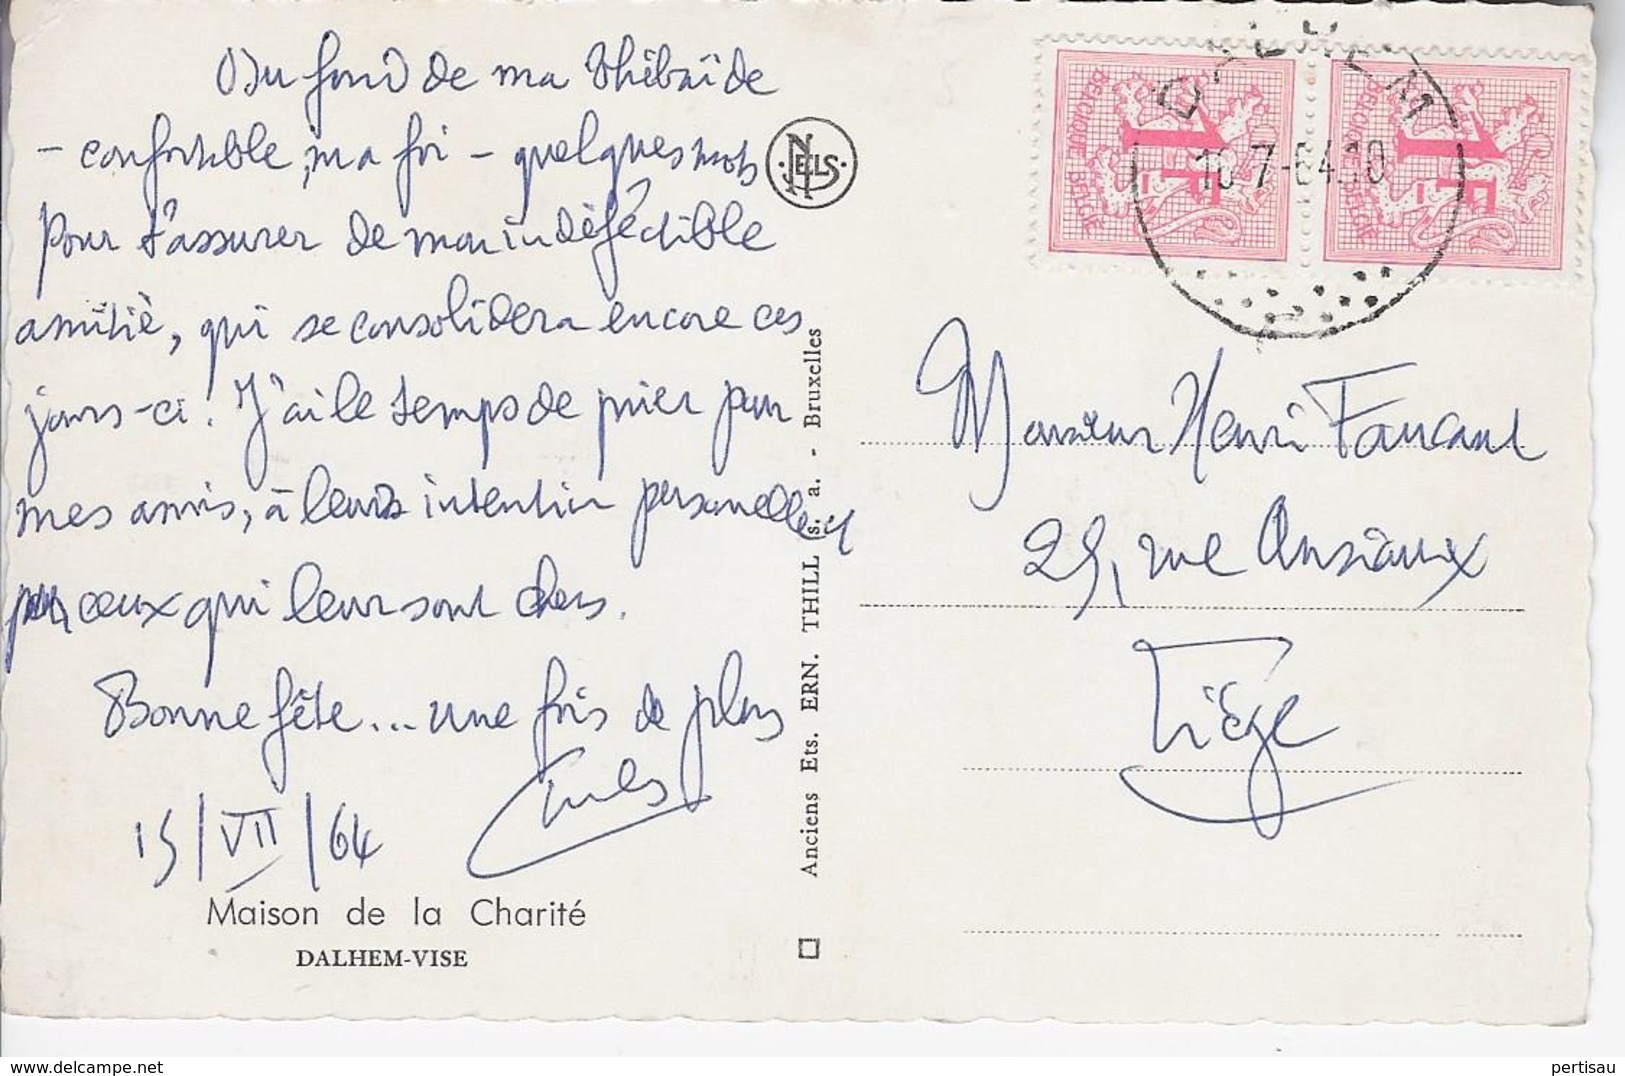 Du fond de ma thébaïde
- confortable, ma foi - quelques mots
pour t'assurer de mon indéféctible
amitié, qui se consolidera encore ces
jours-ci! J'ai le temps de prier pour
mes amis, à leurs intention personnelle et
pour ceux qui leur sont chers.
Bonne fête... une fois de plus
Jules
15/VII/64
Maison de la Charité
DALHEM-VISE
NELS
Anciens Ets. ERN. THILL s. a. - Bruxelles
BELGIQUE BELGIË
1F
BELGIQUE BELGIË
1F
DALHEM
16-7-64
Monsieur Henri
25, rue Ansiaux
Liège
pertisau